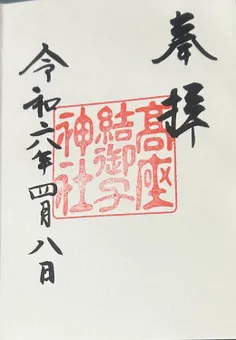 奉拝
髙座
結御子
神社
令和六年四月八日